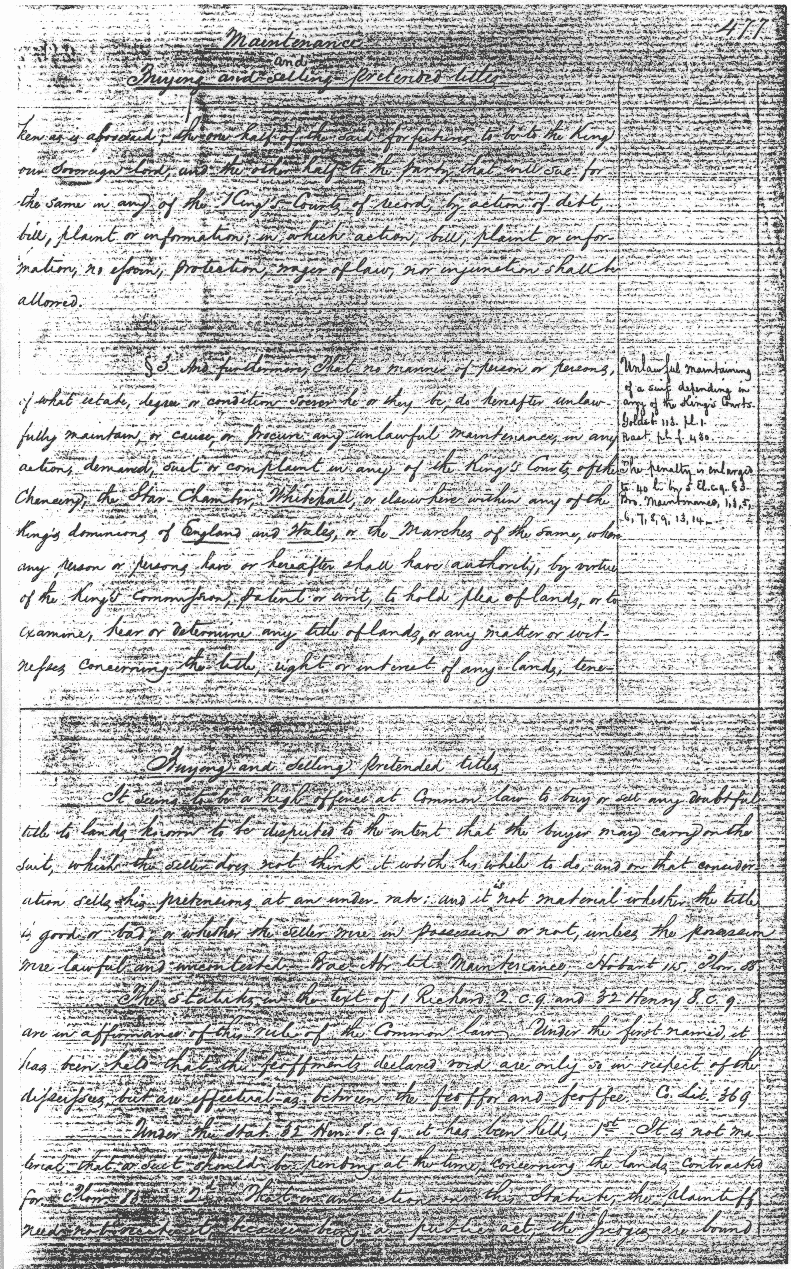 477
Maintenance
and
Buying and selling pretended titles
ken as is aforesaid; the one half of the said forfeiture to be to the King
our sovereign lord, and the other half to the party that will sue for
the same in any of the King's Courts of record, by action of debt,
bill, plaint or information; in which action, bill, plaint or infor-
mation, no essoin, protection, wager of law, nor injunction shall be
allowed.
§ 3. And furthermore, That no manner of person or persons,
of what estate, degree or condition soever he or they be, do hereafter unlaw-
fully maintain, or cause, or procure any unlawful maintenance, in any
action, demand, suit or complaint in any of the King's Courts of the
Chancery, the Star-Chamber, Whitehall, or elsewhere within any of the
King's dominions of England and Wales, or the Marches of the same, where
any person or persons have or hereafter shall have authority, by virtue
of the King's Commission, patent or writ, to hold plea of lands, or to
examine, hear or determine any title of lands, or any matter or wit-
nesses concerning the title, right or interest of any lands, tene-
Unlawful maintaining
of a suit depending in
any of the King's Courts.
Goldsb. 113. pl. 1.
Rast. pl. f. 430.
The penalty is enlarged
to 40 l. by 5 El. c. 9. § 3.
Bro. Maintenance, 1, 3, 5,
6, 7, 8, 9, 13, 14.
Buying and selling pretended titles
It seems to be a high offence at Common law to buy or sell any doubtful
title to lands known to be disputed to the intent that the buyer may carry on the
suit, which the seller does not think it worth his while to do, and on that consider
ation sells his pretensions at an under-rate: and it is not material whether the title
is good or bad, or whether the seller were in possession or not, unless the possession
were lawful and uncontested. Bac. Abr. tit. Maintenance, Hobart 115, Plow. 88
The Statutes in the text of 1 Richard 2. c. 9. and 32 Henry 8. c. 9.
are in affirmance of this rule of the Common law. Under the first named, it
has been held that the feoffments declared void are only so in respect of the
disseisees, but are effectual as between the feoffor and feoffee. Co. Lit. 369
Under the stat. 32 Hen. 8. c. 9. it has been held, 1st It is not ma-
terial that a suit should be pending at the time, concerning the lands contracted
for Plow. 2d That in an action on the Statute, the plaintiff
need not recite it, because being a public act, the Judges are bound